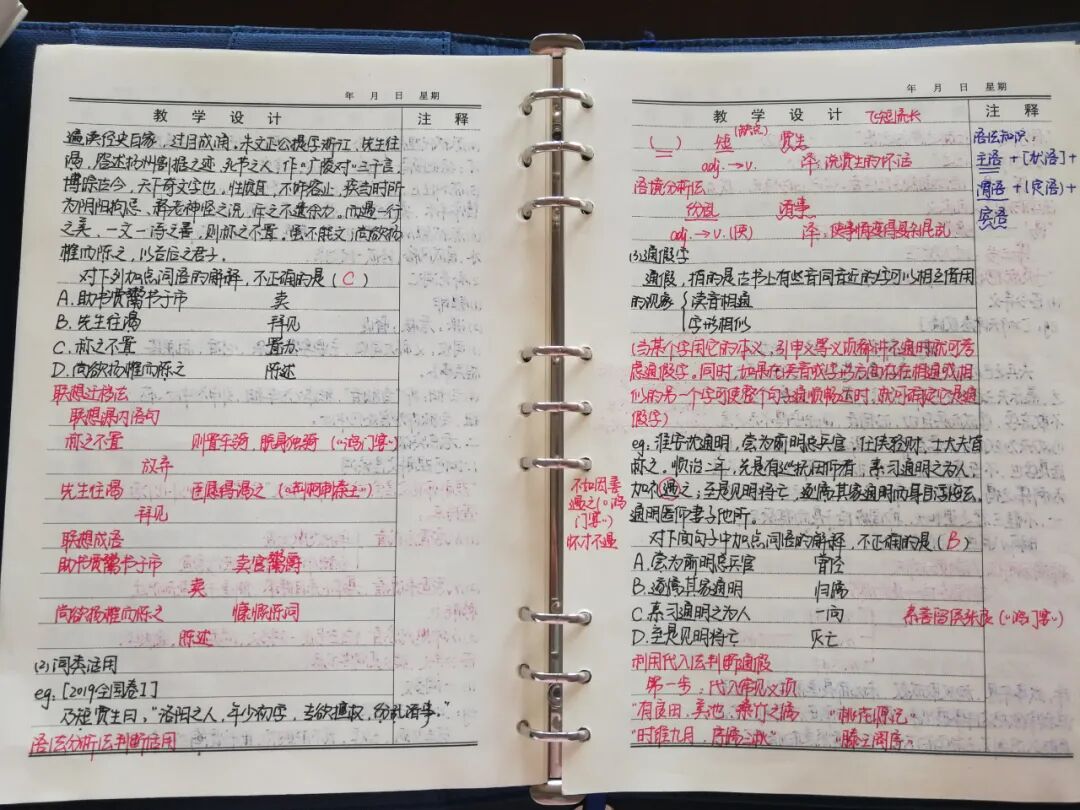 年 月 日 星期
教 学 设 计 注 释
遍读经史百家，过目成诵。朱文正公提学浙江，先生往
谒，答述扬州割据之迹，永书之人，作《广陵对》三千言，
博综古今，天下奇文学也。性质直，不饰容止，疾当时所
为阴阳拘忌、释老神怪之说，斥之不遗余力。而遇一行
之美，一文一语之善，则称之不置。虽不能文，尚欲扬
榷而陈之，以告后之君子。
对下列加点词语的解释，不正确的是（C）
A.助书贾鬻书于市 卖
B.先生往谒 拜见
C.称之不置 置办
D.尚欲扬榷而陈之 陈述
联想迁移法
联想课内语句
称之不置 则置车骑，脱身独骑（《鸿门宴》）
放弃
先生往谒 臣展得谒之（《荆轲刺秦王》）
拜见
联想成语
助书贾鬻书于市 卖官鬻爵
卖
尚欲扬榷而陈之 慷慨陈词
陈述
(2)词类活用
eg.[2019全国卷I]
乃短贾生曰，“洛阳之人，年少初学，专欲擅权，纷乱诸事。”
语法分析法判断活用
年 月 日 星期
教 学 设 计 飞短流长 注 释
（缺点）
（ ） 短 贾生
adj.→v. 译：说贾生的坏话
语境分析法
纷乱 诸事
adj.→v.(使) 译：使事情变得混乱
语法知识：
主语+[状语]+
谓语+(定语)+
宾语
(3)通假字
通假，指的是古书上有些音同音近的字可以相互借用
的现象 { 读音相通
字形相似
(当某个字用它的本义、引申义等义项都讲不通时就可考
虑通假字。同时，如果在读音或字形方面存在相通或相
似的另一个字可使整个句子通顺畅达时，就可确定它是通
假字)
eg：淮安沈通明，尝为前明总兵官，任侠轻财，士大夫皆
称之。顺治二年，先是有巡抚田仰者，素习通明之为人，
加礼遇之，至是见明将亡，遂属其家通明而身自浮海去。
通明匿仰妻子他所。
不如因善
遇之（《鸿
门宴》）
怀才不遇
对下面句子中加点词语的解释，不正确的是（B）
A.尝为前明总兵官 曾经
B.遂属其家通明 归属
C.素习通明之为人 一向 素善留侯张良（《鸿门宴》）
D.至是见明将亡 灭亡
利用代入法判断通假
第一步：代入常见义项
“有良田、美池、桑竹之属” 《桃花源记》
“时维九月，序属三秋” 《滕王阁序》